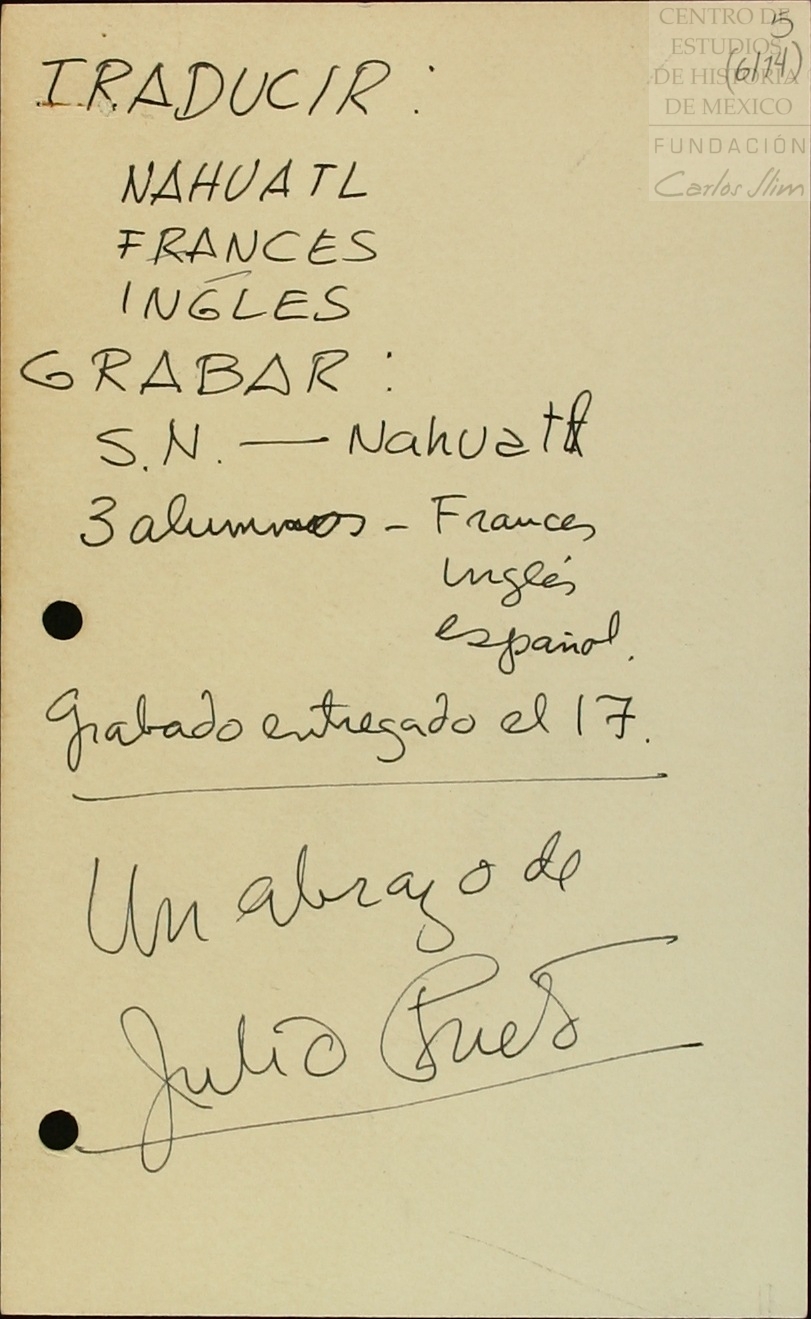 CENTRO DE
ESTUDIOS
DE HISTORIA
DE MEXICO
FUNDACIÓN
Carlos Slim
5
(6/14)
TRADUCIR:
NAHUATL
FRANCES
INGLES
GRABAR:
S.N. — Nahuatl
3 alumnos - Frances
Inglés
español.
Grabado entregado el 17.
Un abrazo de
Julio Prieto